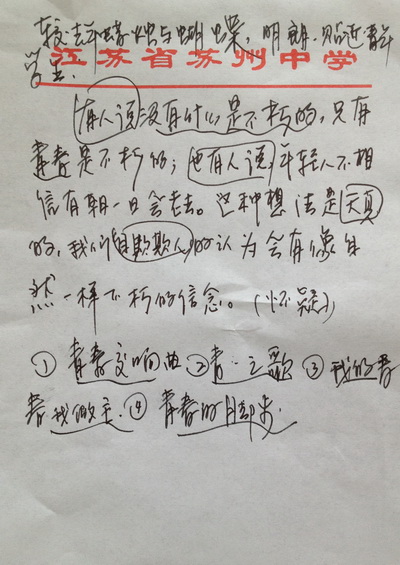 较: 去年蜡烛与蝴蝶, 明朗. 贴近青年
学生.
江苏省苏州中学
有人说没有什么是不朽的,只有
青春是不朽的;也有人说,年轻人不相
信有朝一日会老去。这种想法是天真
的,我们自欺欺人的认为会有像自
然一样不朽的信念。(怀疑)
① 青春交响曲 ② 青春之歌 ③ 我的青
春我做主. ④ 青春的脚步.